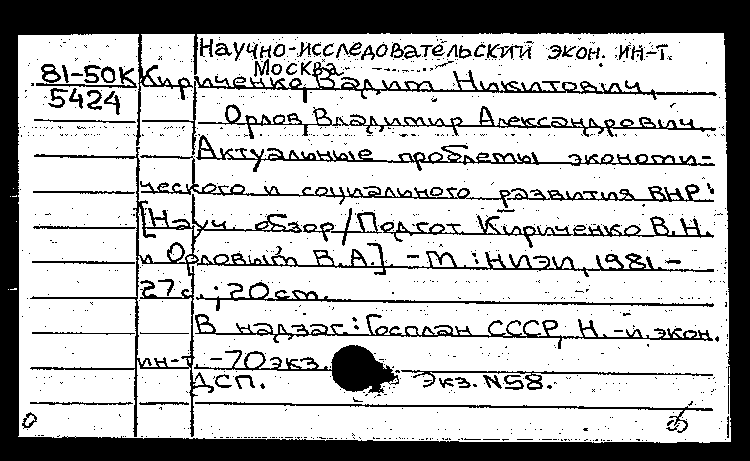 Научно-исследовательский экон. ин-т.
Москва
81-50К Кириченко, Вадим Никитович,
5424 Орлов, Владимир Александрович.
Актуальные проблемы экономи-
ческого и социального развития ВНР:
[Науч. обзор/Подгот. Кириченко В.Н.
и Орловым В.А.]. - М.: НИЭИ, 1981.-
27с.; 20см.
В надзаг: Госплан СССР, Н.-и. экон.
ин-т. - 70 экз.
ДСП. Экз. N58.